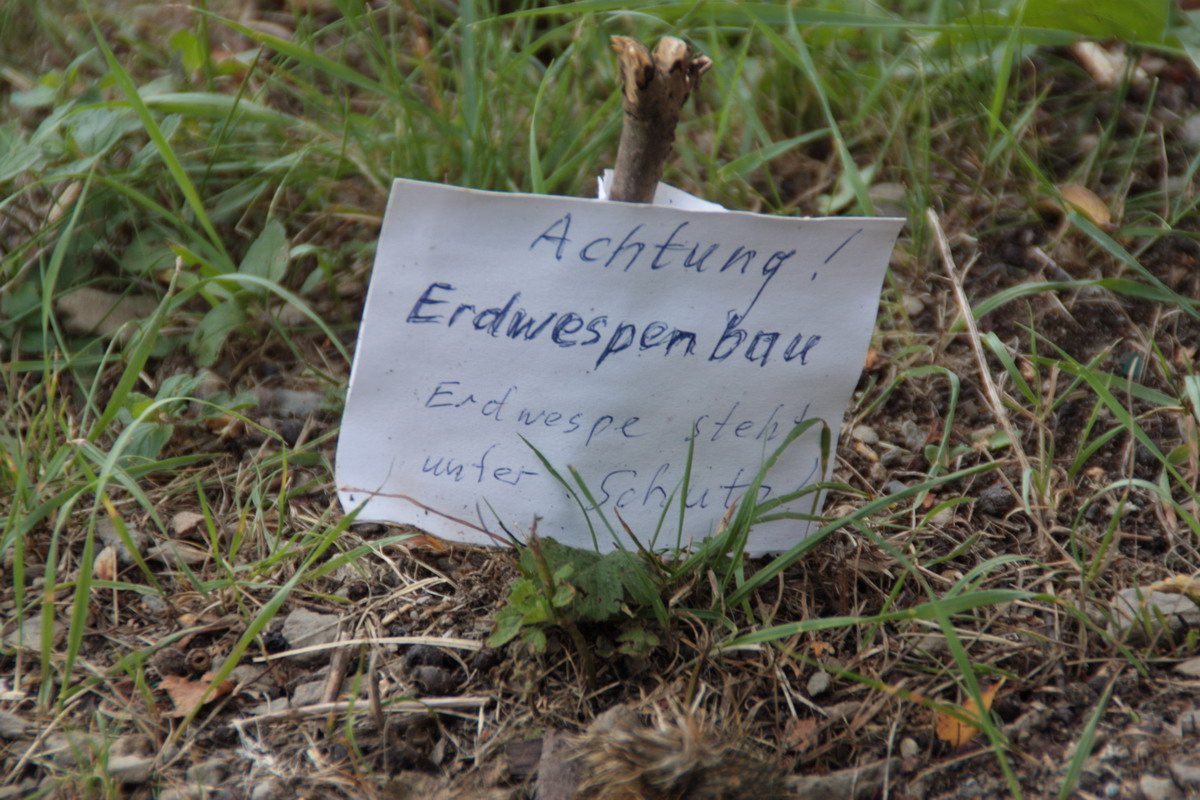 Achtung!
Erdwespenbau
Erdwespe steht
unter Schutz!